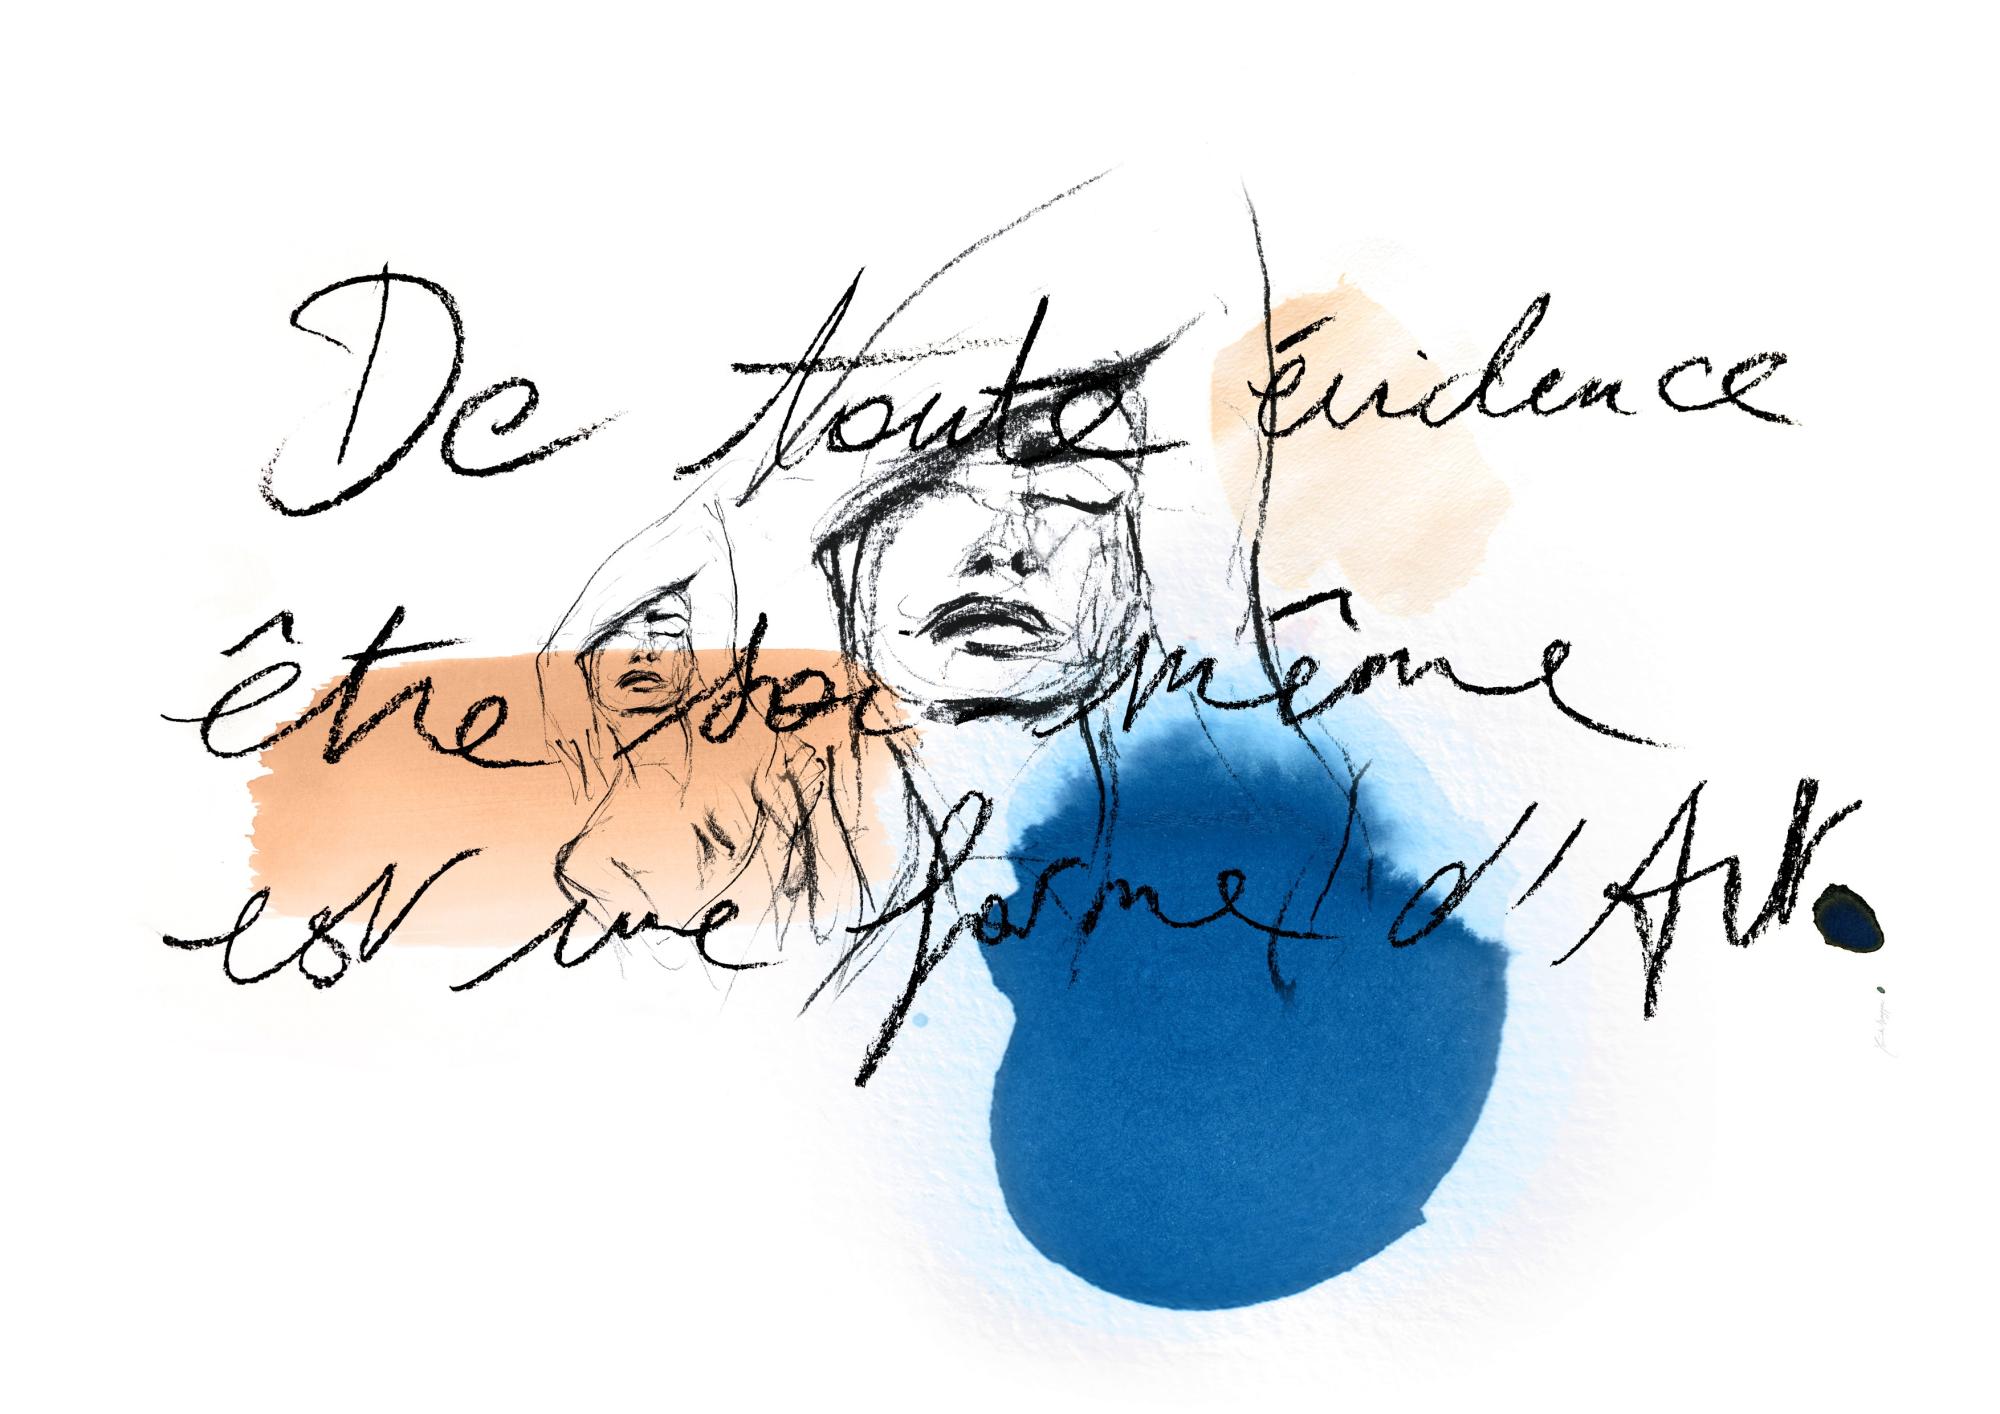 De toute évidence
être soi même
est une forme d'Art.